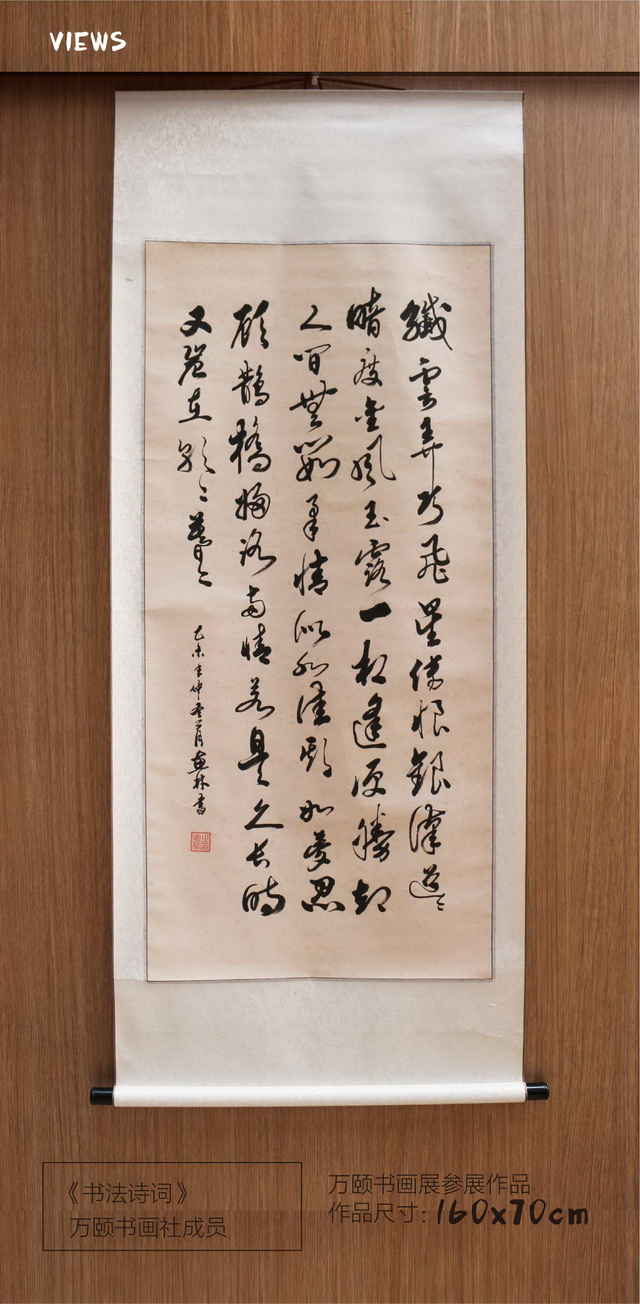 VIEWS
纖雲弄巧飛星傳恨銀漢迢〻
暗度金風玉露一相逢便勝却
人間無數柔情似水佳期如夢忍
顧鵲橋歸路兩情若是久長時
又豈在朝〻暮〻
乙未年仲冬月林書
《书法诗词》
万颐书画社成员
万颐书画展参展作品
作品尺寸:160x70cm